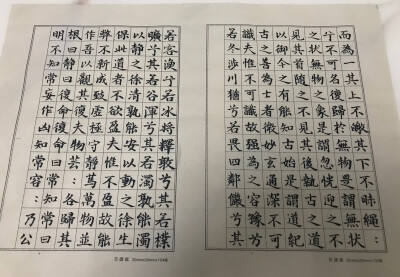 而為一其上不皦其下不昧繩：
兮不可名復歸於無物是謂無狀
之狀無物之象是謂忽恍迎之不
見其首随之不見其後執古之道
以御今之有能知古始是謂道紀
古之善為士者微妙玄通深不可
識夫惟不可識故強為之容豫兮
若冬涉川猶兮若畏四鄰儼兮其
若客渙兮若冰將釋敦兮其若樸
曠兮其若谷渾兮其若濁孰能濁
以靜之徐清孰能安以動之徐生
保此道者不欲盈夫惟不盈故能
弊不新成致虛極守靜篤萬物並
作吾以觀其復夫物芸：各歸其
根曰靜曰復命復命曰常知常曰
明不知常妄作凶知常容：乃公